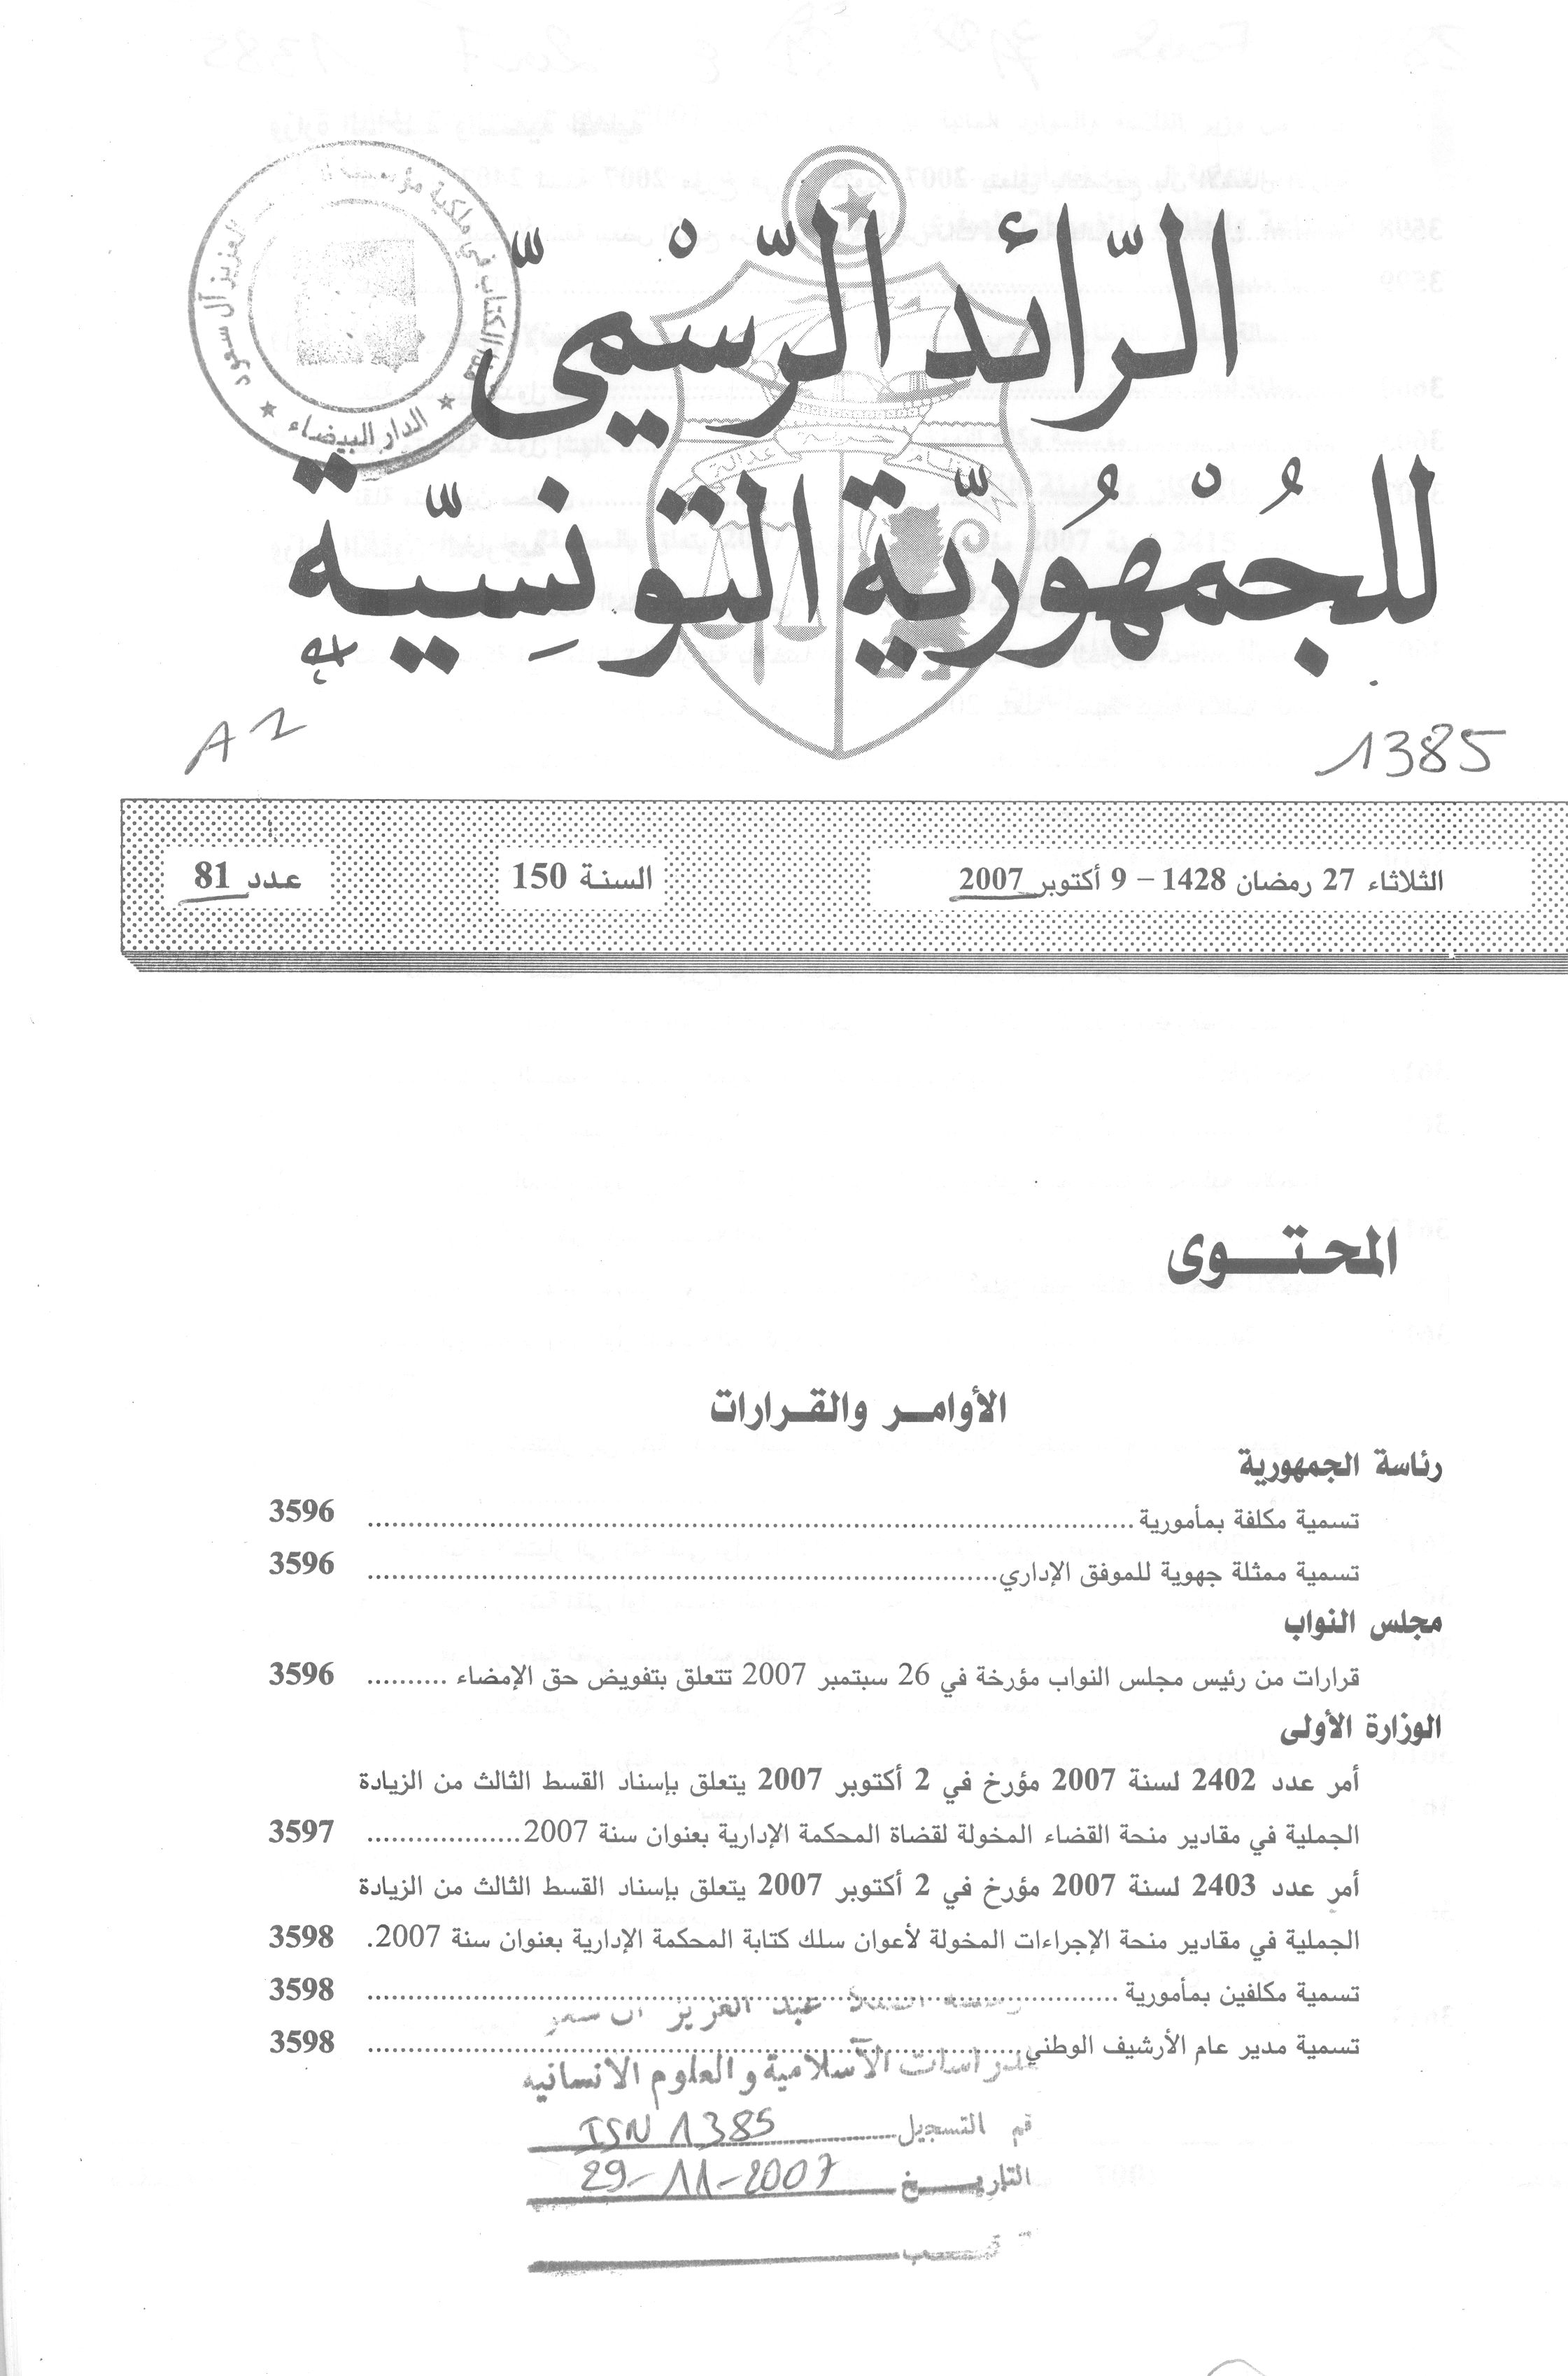 الرّائد الرّسْميّ
للجُمْهُوريّة التّونِسِيّة
A2
1385
الثلاثاء 27 رمضان 1428 – 9 أكتوبر 2007
السنة 150
عدد 81
المحتوى
الأوامر والقرارات
رئاسة الجمهورية
تسمية مكلفة بمأمورية ........ 3596
تسمية ممثلة جهوية للموفق الإداري ........ 3596
مجلس النواب
قرارات من رئيس مجلس النواب مؤرخة في 26 سبتمبر 2007 تتعلق بتفويض حق الإمضاء .......... 3596
الوزارة الأولى
أمر عدد 2402 لسنة 2007 مؤرخ في 2 أكتوبر 2007 يتعلق بإسناد القسط الثالث من الزيادة
الجملية في مقادير منحة القضاء المخولة لقضاة المحكمة الإدارية بعنوان سنة 2007 ........ 3597
أمر عدد 2403 لسنة 2007 مؤرخ في 2 أكتوبر 2007 يتعلق بإسناد القسط الثالث من الزيادة
الجملية في مقادير منحة الإجراءات المخولة لأعوان سلك كتابة المحكمة الإدارية بعنوان سنة 2007. 3598
تسمية مكلفين بمأمورية ........ 3598
تسمية مدير عام الأرشيف الوطني ........ 3598
عبد العزيز آل سعو
الآسلامية والعلوم الانسانيه
التسجيل ISN 1385
التاريخ 29-11-2007
العزيز آل سعود
الدار البيضاء